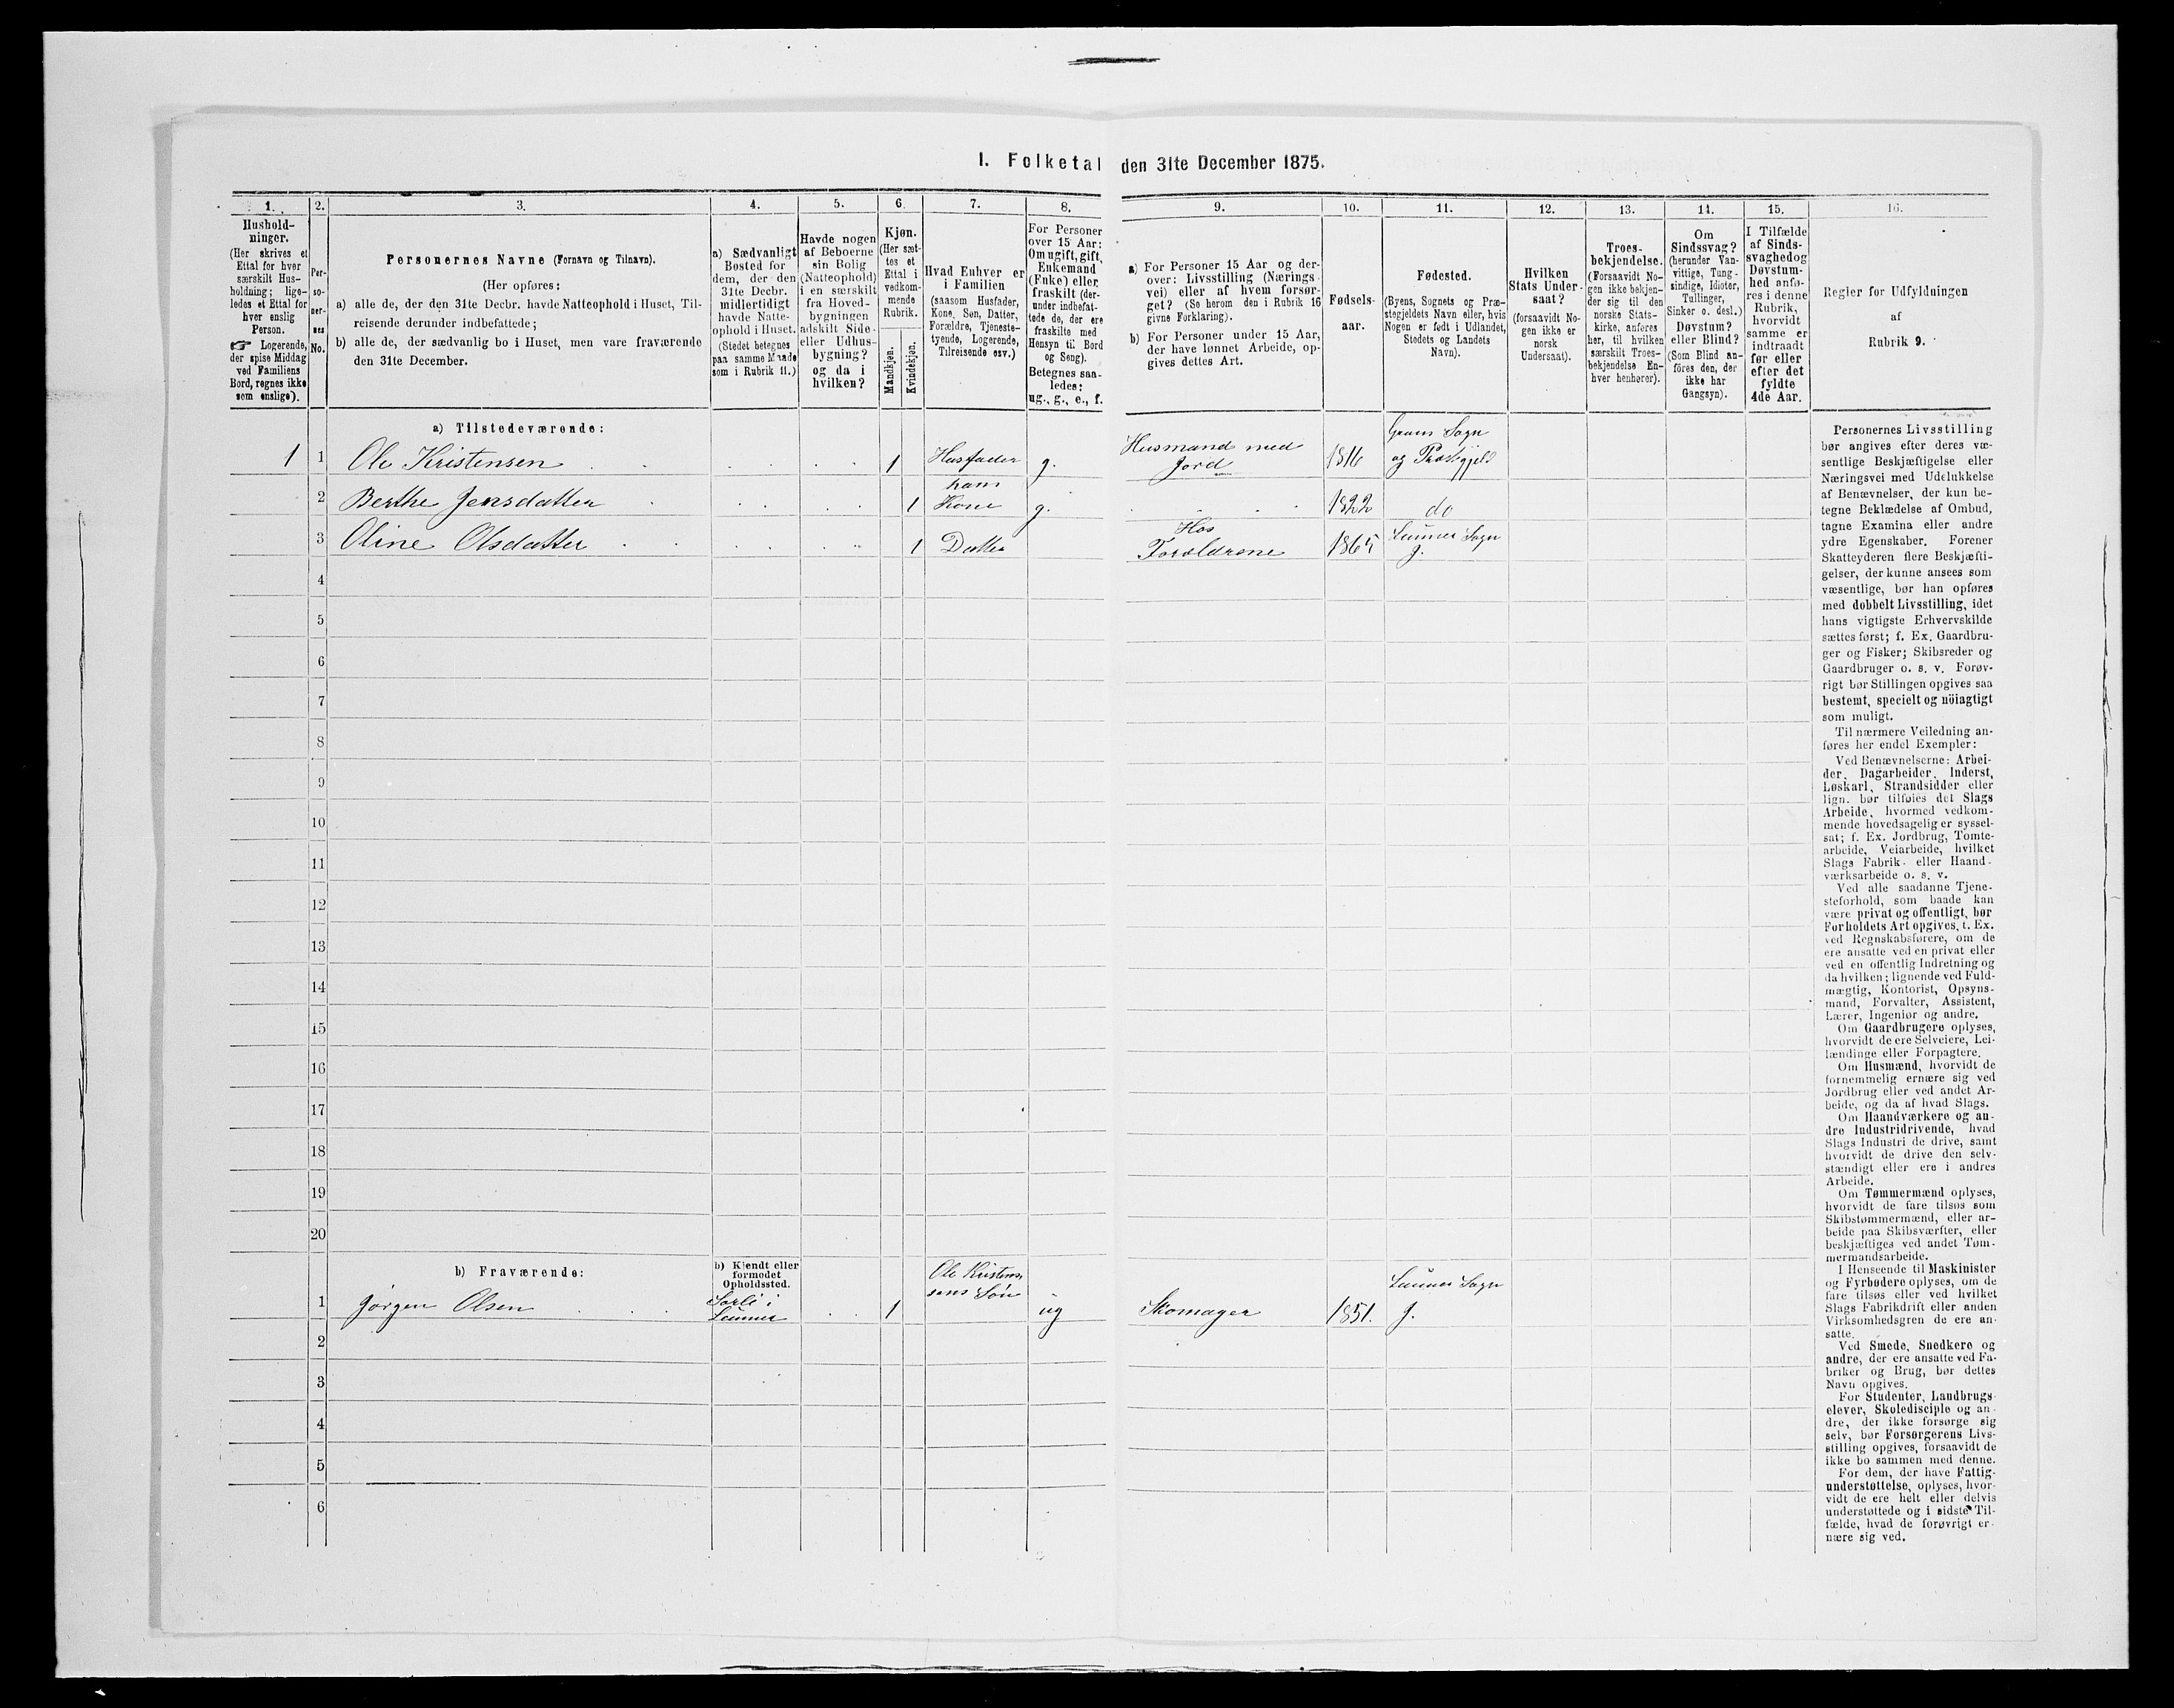 I. Folketal den 31te December 1875.
1.
2.
3.
4.
5.
6.
7.
8.
9.
10.
11.
12.
13.
14.
15.
16.
Hushold-
ninger.
(Her skrives et
Ettal for hver
særskilt Hus-
holdning; lige-
ledes et Ettal for
hver enslig
Person.
☞ Logerende,
der spise Middag
ved Familiens
Bord, regnes ikke
som enslige).
Per-
so-
ner-
nes
No.
Personernes Navne (Fornavn og Tilnavn).
(Her opføres:
a) alle de, der den 31te Decbr. havde Natteophold i Huset, Til-
reisende derunder indbefattede;
b) alle de, der sædvanlig bo i Huset, men vare fraværende
den 31te December.
a) Sædvanligt
Bosted for
dem, der den
31te Decbr.
midlertidigt
havde Natte-
ophold i Huset.
(Stedet betegnes
paa samme Maade
som i Rubrik 11.)
Havde nogen
af Beboerne
sin Bolig
(Natteophold)
i en særskilt
fra Hoved-
bygningen
adskilt Side-
eller Udhus-
bygning?
og da i
hvilken?
Kjøn.
(Her sæt-
tes et
Ettal i
vedkom-
mende
Rubrik.
Mandkjøn.
Kvindekjøn.
Hvad Enhver er
i Familien
(saasom Husfader,
Kone, Søn, Datter,
Forældre, Tjeneste-
tyende, Logerende,
Tilreisende osv.)
For Personer
over 15 Aar:
Om ugift, gift,
Enkemand
(Enke) eller
fraskilt (der-
under indbefat-
tede de, der ere
fraskilte med
Hensyn til Bord
og Seng).
Betegnes saa-
ledes:
ug., g., e., f.
a) For Personer 15 Aar og der-
over: Livsstilling (Nærings-
vei) eller af hvem forsør-
get? (Se herom den i Rubrik 16
givne Forklaring).
b) For Personer under 15 Aar,
der have lønnet Arbeide, op-
gives dettes Art.
Fødsels-
aar.
Fødested.
(Byens, Sognets og Præ-
stegjeldets Navn eller, hvis
Nogen er født i Udlandet,
Stedets og Landets
Navn).
Hvilken
Stats Under-
saat?
(forsaavidt No-
gen ikke er
norsk
Undersaat).
Troes-
bekjendelse.
(Forsaavidt No-
gen ikke bekjen-
der sig til den
norske Stats-
kirke, anføres
her, til hvilken
særskilt Troes-
bekjendelse En-
hver henhører).
Om
Sindssvag?
(herunder Van-
vittige, Tung-
sindige, Idioter,
Tullinger,
Sinker o. desl.)
Døvstum?
eller Blind?
(Som Blind an-
føres den, der
ikke har
Gangsyn).
I Tilfælde
af Sinds-
svaghed og
Døvstum-
hed anfø-
res i denne
Rubrik,
hvorvidt
samme er
indtraadt
før eller
efter det
fyldte
4de Aar.
Regler for Udfyldningen
af
Rubrik 9.
a) Tilstedeværende:
1 1 Ole Kristensen 1 Husfader g. Husmand med Jord 1816 Grans Sogn og Præstegjeld
2 Berthe Jensdatter 1 hans Kone g. 1822 do
3 Oline Olsdatter 1 Datter Hos Forældrene 1865 Lunner Sogn J.
4
5
6
7
8
9
10
11
12
13
14
15
16
17
18
19
20
b) Fraværende:
b) Kjendt eller
formodet
Opholdssted.
1 Jørgen Olsen Sorli i Lunner 1 Ole Kristensens Søn ug Skomager 1851. Lunner Sogn J.
2
3
4
5
6
Personernes Livsstilling
bør angives efter deres væ-
sentlige Beskjæftigelse eller
Næringsvei med Udelukkelse
af Benævnelser, der kun be-
tegne Beklædelse af Ombud,
tagne Examina eller andre
ydre Egenskaber. Forener
Skatteyderen flere Beskjæfti-
gelser, der kunne ansees som
væsentlige, bør han opføres
med dobbelt Livsstilling, idet
hans vigtigste Erhvervskilde
sættes først; f. Ex. Gaardbru-
ger og Fisker; Skibsreder og
Gaardbruger o. s. v. Forøv-
rigt bør Stillingen opgives saa
bestemt, specielt og nöiagtigt
som muligt.
Til nærmere Veiledning an-
føres her endel Exempler:
Ved Benævnelserne: Arbei-
der, Dagarbeider, Inderst,
Løskarl, Strandsidder eller
lign. bør tilføies det Slags
Arbeide, hvormed vedkom-
mende hovedsagelig er syssel-
sat; f. Ex. Jordbrug, Tomte-
arbeide, Veiarbeide, hvilket
Slags Fabrik- eller Haand-
værksarbeide o. s. v.
Ved alle saadanne Tjene-
steforhold, som baade kan
være privat og offentligt, bør
Forholdets Art opgives, t. Ex.
ved Regnskabsførere, om de
ere ansatte ved en privat eller
ved en offentlig Indretning og
da hvilken; lignende ved Fuld-
mægtig, Kontorist, Opsyns-
mand, Forvalter, Assistent,
Lærer, Ingeniør og andre.
Om Gaardbrugere oplyses,
hvorvidt de ere Selveiere, Lei-
lændinge eller Forpagtere.
Om Husmænd, hvorvidt de
fornemmelig ernære sig ved
Jordbrug eller ved andet Ar-
beide, og da af hvad Slags.
Om Haandværkere og an-
dre Industridrivende, hvad
Slags Industri de drive, samt
hvorvidt de drive den selv-
stændigt eller ere i andres
Arbeide.
Om Tømmermænd oplyses,
hvorvidt de fare tilsøs som
Skibstømmermænd, eller ar-
beide paa Skibsværfter, eller
beskjæftiges ved andet Tøm-
mermandsarbeide.
I Henseende til Maskinister
og Fyrbødere oplyses, om de
fare tilsøs eller ved hvilket
Slags Fabrikdrift eller anden
Virksomhedsgren de ere an-
satte.
Ved Smede, Snedkere og
andre, der ere ansatte ved Fa-
briker og Brug, bør dettes
Navn opgives.
For Studenter, Landbrugs-
elever, Skoledisciple og an-
dre, der ikke forsørge sig
selv, bør Forsørgerens Livs-
stilling opgives, forsaavidt de
ikke bo sammen med denne.
For dem, der have Fattig-
understøttelse, oplyses, hvor-
vidt de ere helt eller delvis
understøttede og i sidste Til-
fælde, hvad de forøvrigt er-
nære sig ved.